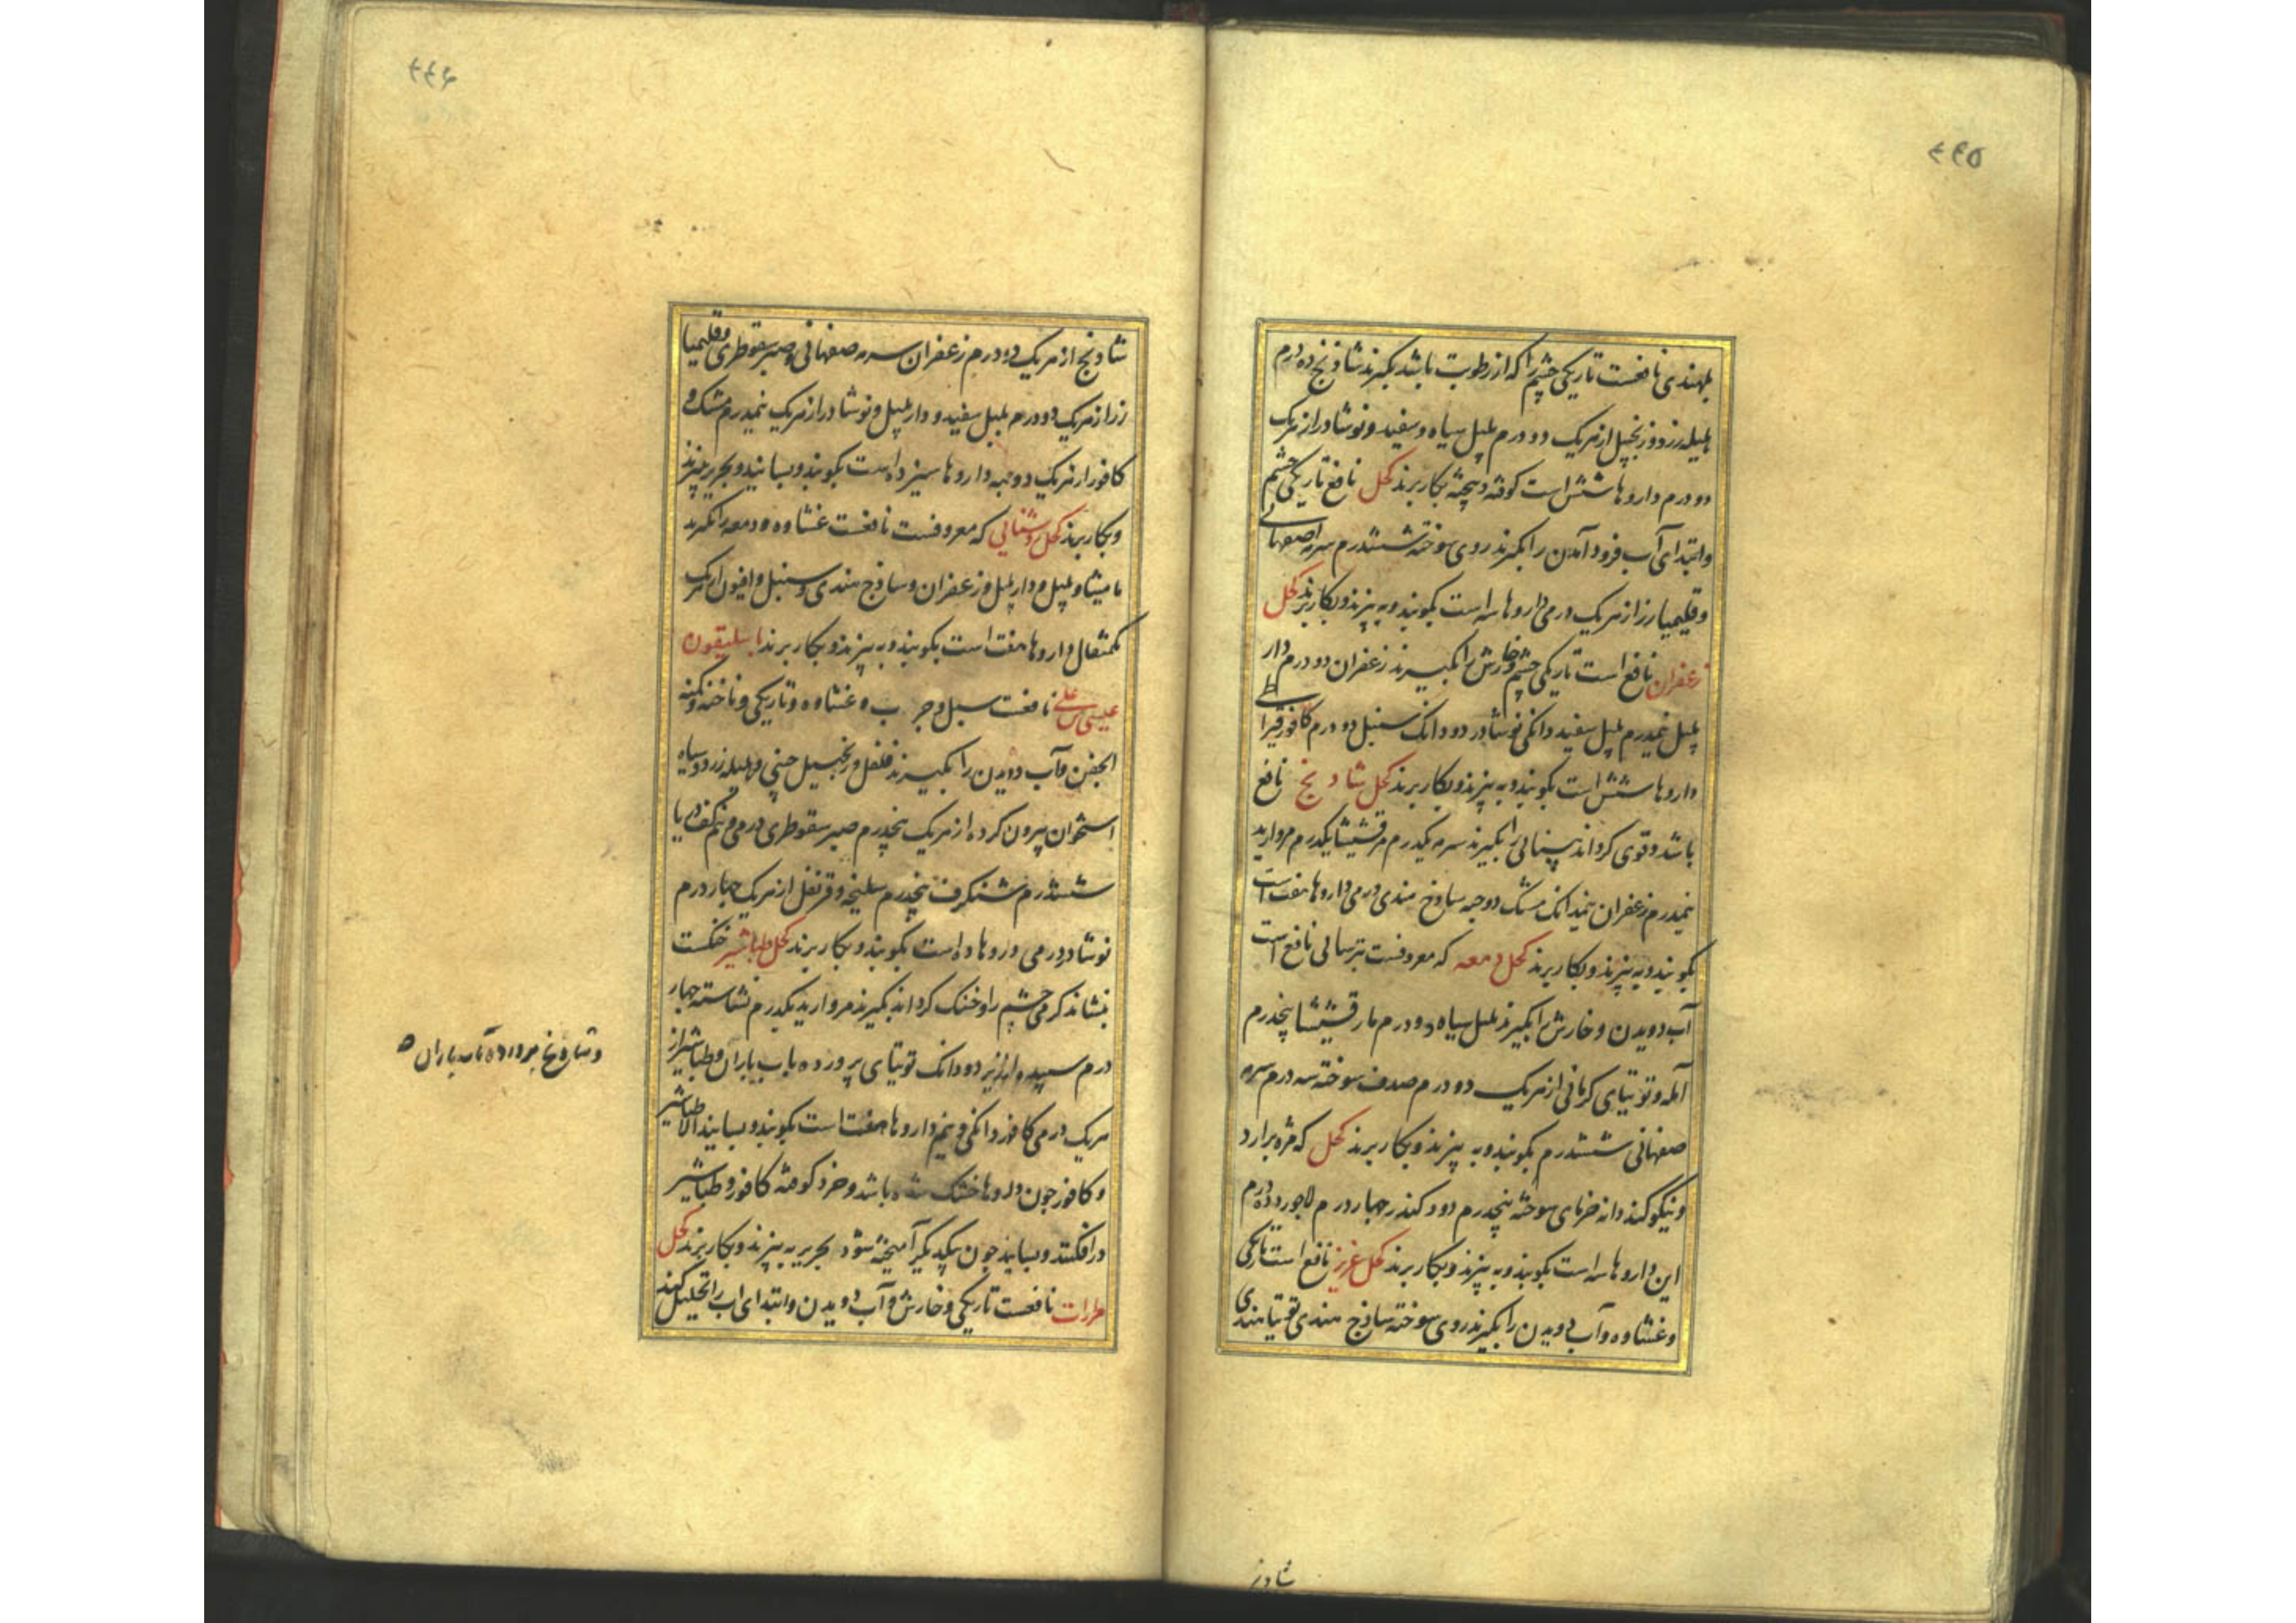 ۴۴۵
بهندی نافعست تاریکی چشم را که از رطوبت باشد بکیرند شادنج ده درم
هلیله زرد و زنجبیل از هریک دو درم پلپل سیاه و سفید و نوشادر از هریک
دو درم داروها شش است کوفته و بیخته بکار برند کحل نافع تاریکی چشم
وابتدای آب فرود آمدن را بکیرند روی سوخته ششدرم سرمه اصفهانی
وقلیمیا زر از هریک درمی داروها سه است بکوبند و به بیزند و بکار برند کحل
زعفران نافع است تاریکی چشم و خارش را بکیرند زعفران دو درم دار
پلپل نیمدرم پلپل سفید دانکی نوشادر دو دانک سنبل دو درم کافور قیراطی
داروها شش است بکوبند و به بیزند و بکار برند کحل شادنج نافع
باشد و قوی کرداند بینائی را بکیرند سرمه یکدرم مرقشیشا یکدرم مروارید
نیمدرم زعفران نیمدانک مشک دو حبه ساذج هندی درمی داروها هفت است
بکوبند و به بیزند و بکار برند کحل دمعه که معروفست بترسائی نافع است
آب دویدن و خارش را بکیرند پلپل سیاه دو درم مارقشیشا پنجدرم
آمله و توتیای کرمانی از هریک دو درم صدف سوخته سه درم سرمه
صفهانی ششدرم بکوبند و به بیزند و بکار برند کحل که مژه برآرد
ونیکو کند دانه خرمای سوخته پنجدرم دود کندر چهار درم لاجورد ده درم
این داروها سه است بکوبند و به بیزند و بکار برند کحل غریز نافع است تاریکی
وغشاوه و آب دویدن را بکیرند روی سوخته ساذج هندی توتیا هندی
شادنج
۴۴۶
شادنج از هریک ده درم زعفران سرمه صفهانی و صبر سقوطری وقلیمیا
زر از هریک دو درم پلپل سفید و دار پلپل و نوشادر از هریک نیمدرم مشک و
کافور از هریک دو حبه داروها سیزده است بکوبند و بسایند و بحریر بیزند
وبکار برند کحل روشنایی که معروفست نافعست غشاوه و دمعه را بکیرند
مامیثا و پلپل و دار پلپل و زعفران و ساذج هندی و سنبل و افیون از هریک
یکمثقال داروها هفت است بکوبند و به بیزند و بکار برند باسلیقون
عیسی علی نافعست سبل و جرب و غشاوه و تاریکی و ناخنه و کمنه
الجفن و آب دویدن را بکیرند فلفل و زنجبیل چینی و هلیله زرد و سیاه
استخوان بیرون کرده از هریک پنجدرم صبر سقوطری درمی و نیم کف دریا
ششدرم شنکرف پنجدرم سلیخه و قرنفل از هریک چهار درم
نوشادر درمی داروها ده است بکوبند و بکار برند کحل طباشیر خنکست
بنشاند کرمی چشم را و خنک کرداند بکیرند مروارید یکدرم نشاسته چهار
درم سپیده ارزیز دو دانک توتیای پرورده باب باران و طباشیر از
هریک درمی کافور دانکی و نیم داروها هفت است بکوبند و بسایند الا طباشیر
و کافور چون داروها خشک شده باشد و خرد کوفته کافور و طباشیر
درافکنند و بسایند چون بیکدیکر آمیخته شود بحریر به بیزند و بکار برند کحل
مرارات نافعست تاریکی و خارش و آب دویدن و ابتدای اب را تحلیل کند
آب باران